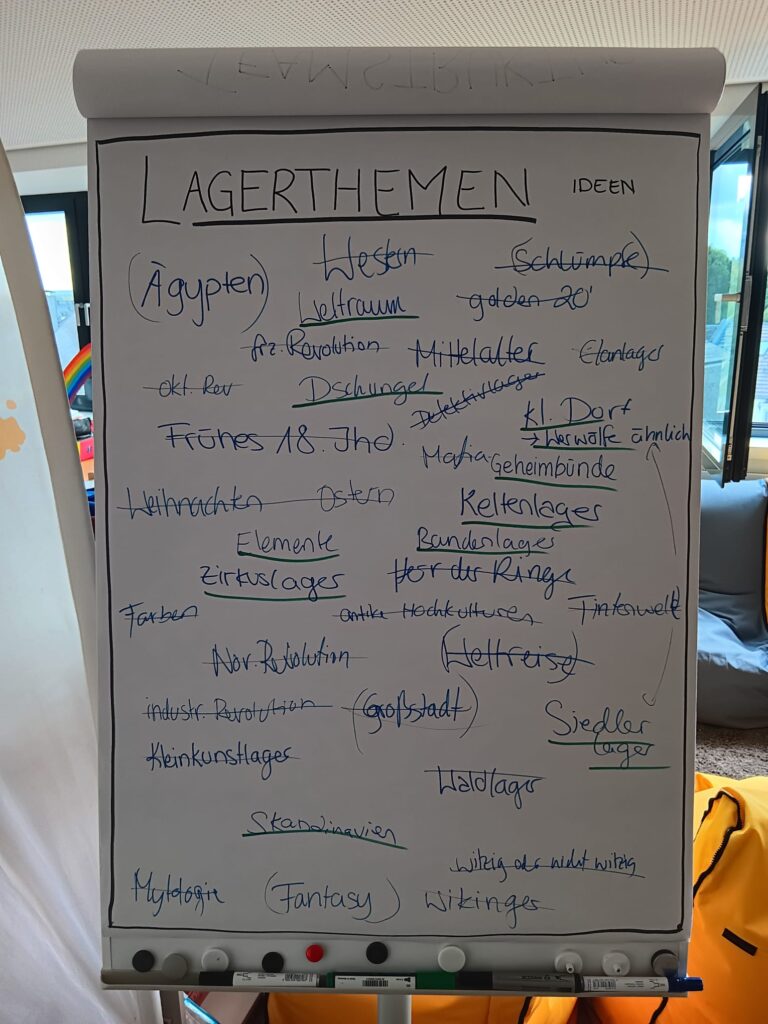 LAGERTHEMEN IDEEN
(Ägypten) Western (Schlümpfe)
Weltraum golden 20'
frz. Revolution Mittelalter Clanlager
Okt. Rev Dschungel Detektivlager
Kl. Dorf
→ Werwölfe ähnlich
Frühes 18. Jhd.
Mafia- Geheimbünde
Weihnachten Ostern Keltenlager
Elemente Bandenlager
Zirkuslager Herr der Ringe
Farben antike Hochkulturen Tintenwelt
Nov. Revolution (Weltreise)
industr. Revolution (Großstadt)
Siedler
lager
Kleinkunstlager
Waldlager
Skandinavien
witzig oder nicht witzig
Mytologie (Fantasy) Wikinger